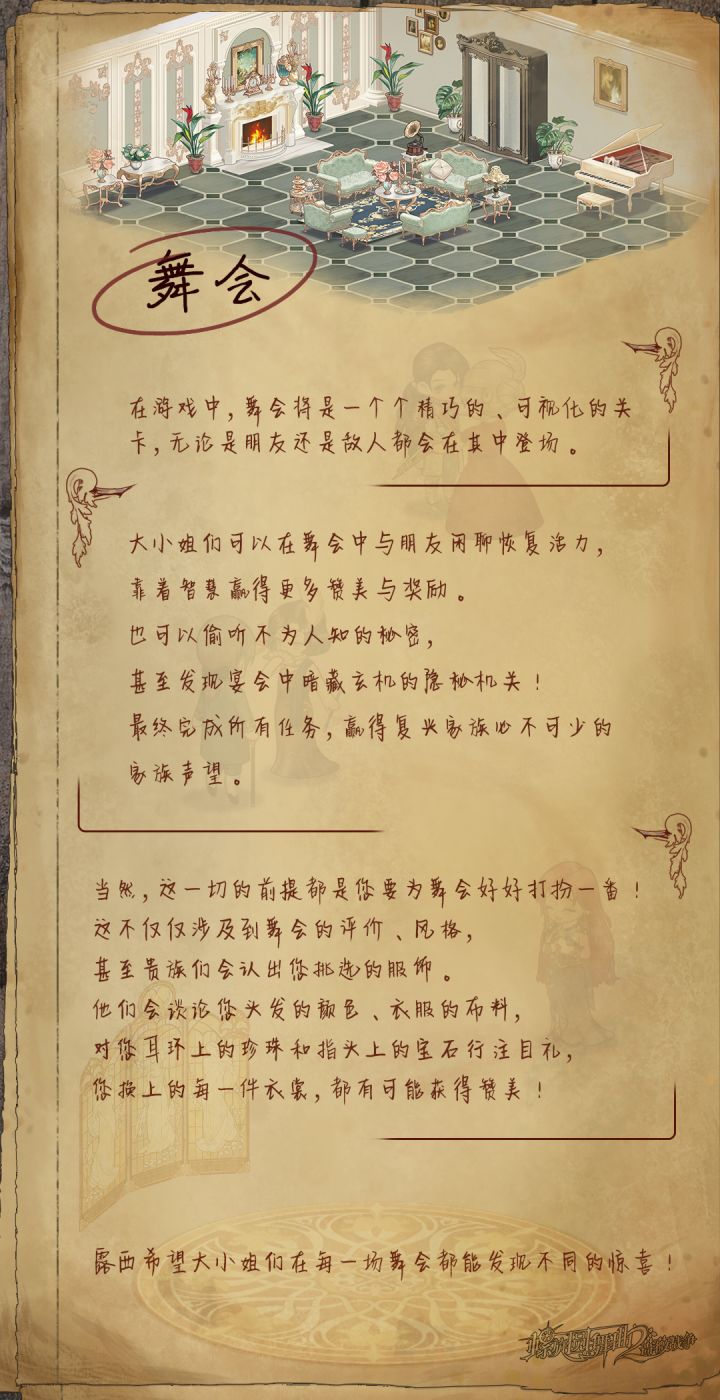 舞会
在游戏中，舞会将是一个个精巧的、可视化的关
卡，无论是朋友还是敌人都会在其中登场。
大小姐们可以在舞会中与朋友闲聊恢复活力，
靠着智慧赢得更多赞美与奖励。
也可以偷听不为人知的秘密，
甚至发现宴会中暗藏玄机的隐秘机关！
最终完成所有任务，赢得复兴家族必不可少的
家族声望。
当然，这一切的前提都是您要为舞会好好打扮一番！
这不仅仅涉及到舞会的评价、风格，
甚至贵族们会认出您挑选的服饰。
他们会谈论您头发的颜色、衣服的布料，
对您耳环上的珍珠和指头上的宝石行注目礼，
您换上的每一件衣裳，都有可能获得赞美！
露西希望大小姐们在每一场舞会都能发现不同的惊喜！
螺旋圆舞曲2